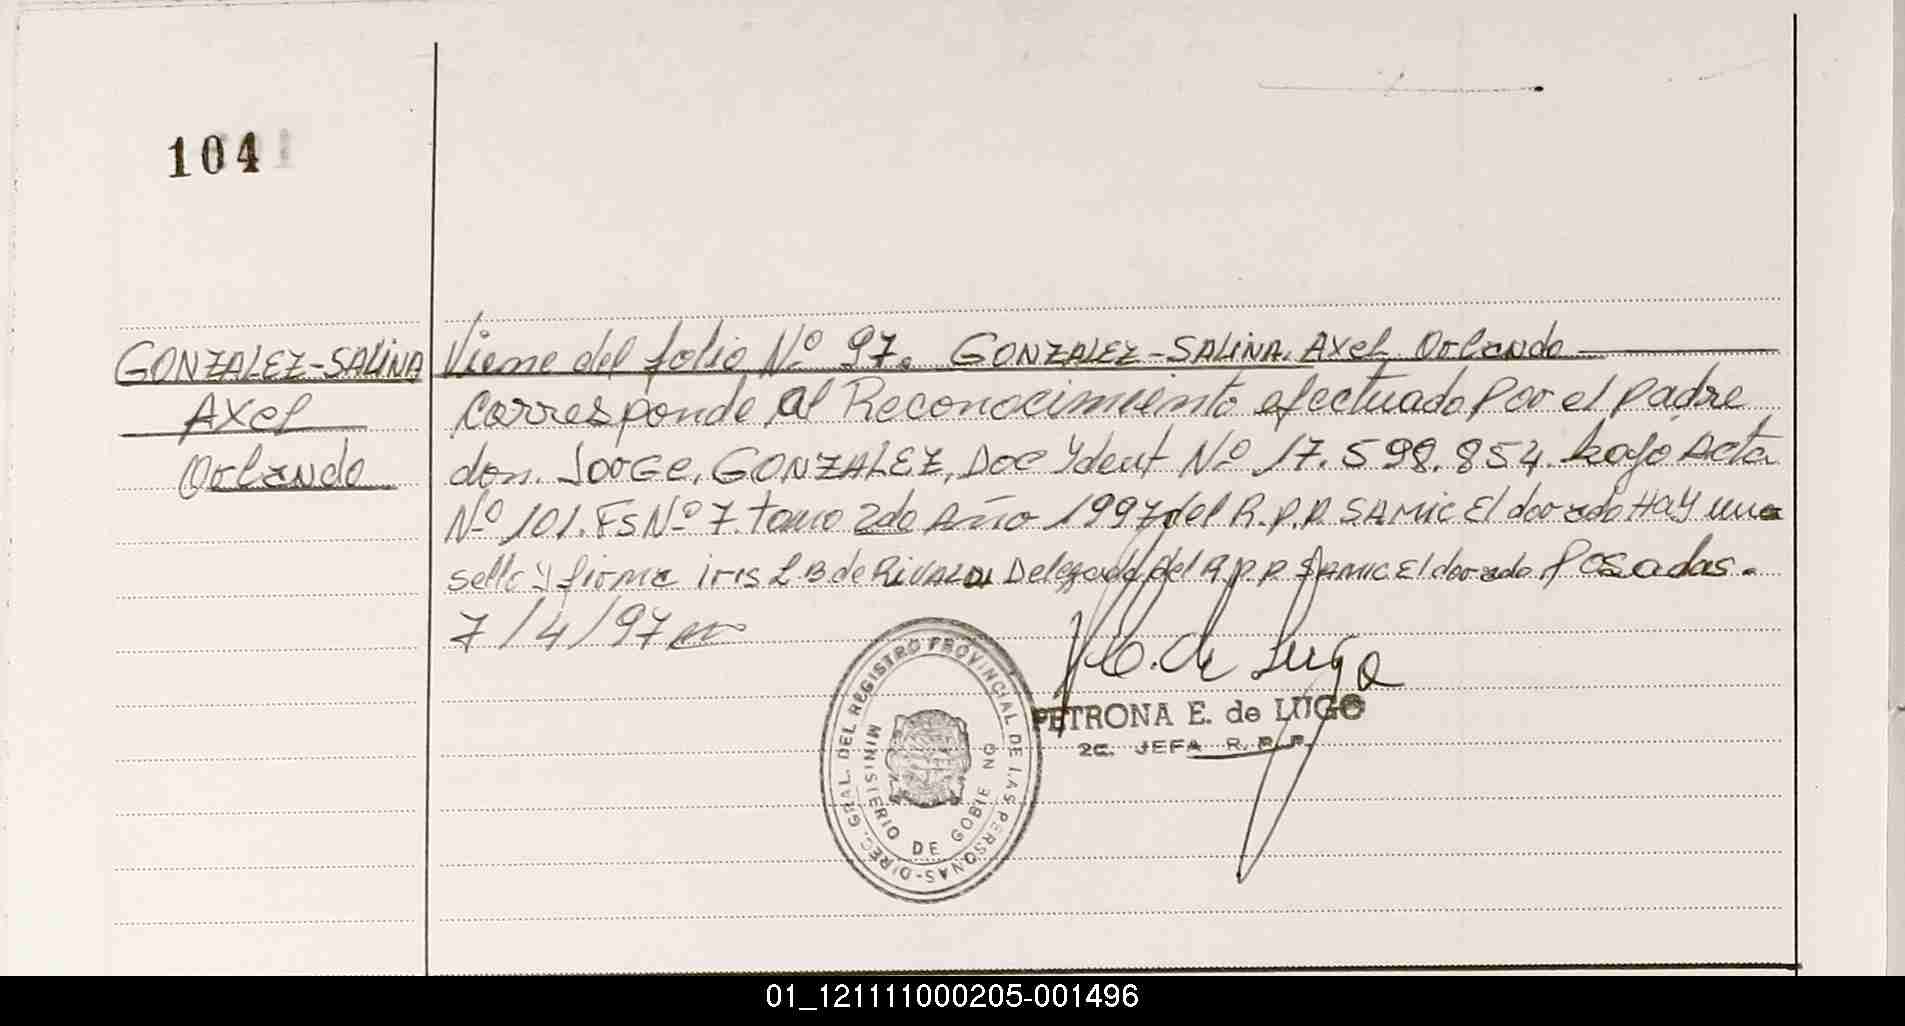 104
GONZALEZ-SALINA
AXEL
Orlando
Viene del folio Nº 97. GONZALEZ-SALINA, AXEL Orlando
Corresponde al Reconocimiento efectuado por el padre
don. JORGE, GONZALEZ, Doc Ydent Nº 17.598.854. bajo Acta
Nº 101. Fs Nº 7. tomo 2do Año 1997 del R.P.P. SAMIC El dorado Hay una
sello y firma iris L B de Delegada del R.P.P. SAMIC El dorado. Posadas.
7/4/97
DIREC. GRAL. DEL REGISTRO PROVINCIAL DE LAS PERSONAS-
MINISTERIO DE GOBIE NO
de Lugo
PETRONA E. de LUGO
2a. JEFA R.P.P.
01_121111000205-001496